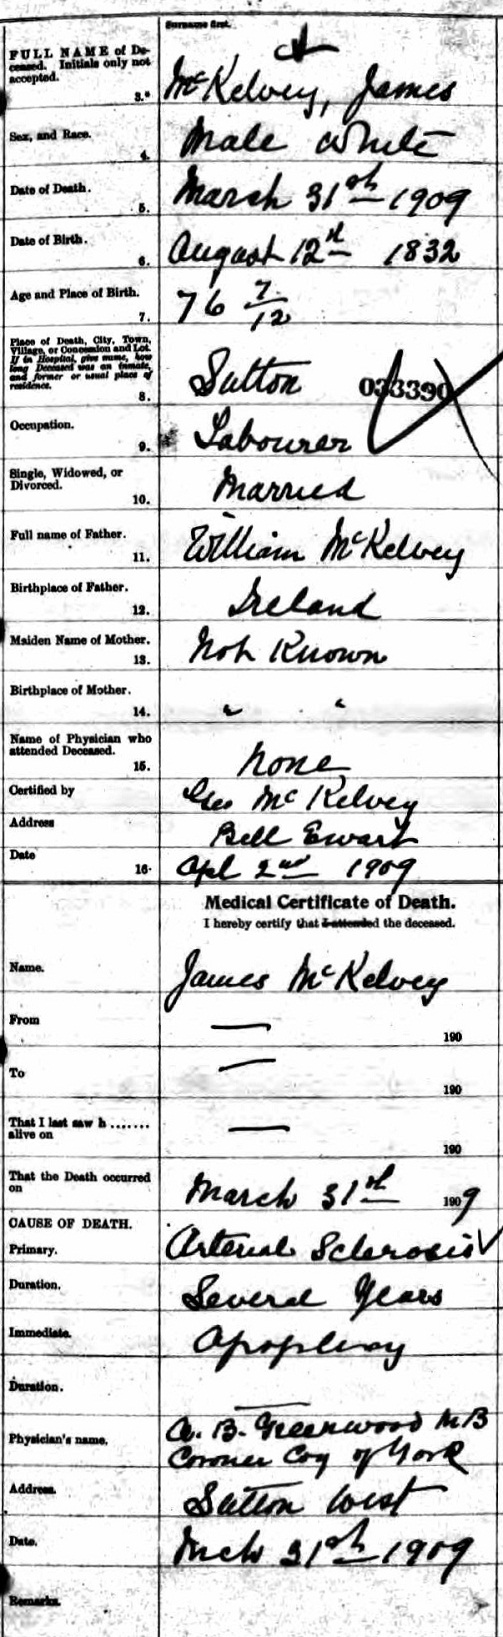 Surname first.
FULL NAME of De-
ceased. Initials only not
accepted.
3.
McKelvey, James
Sex, and Race.
4.
Male White
Date of Death.
5.
March 31st 1909
Date of Birth.
6.
August 12th 1832
Age and Place of Birth.
7.
76 7/12
Place of Death, City, Town,
Village, or Concession and Lot.
If in Hospital, give name, how
long Deceased was an inmate,
and former or usual place of
residence.
8.
Sutton 033390
Occupation.
9.
Labourer
Single, Widowed, or
Divorced.
10.
Married
Full name of Father.
11.
William McKelvey
Birthplace of Father.
12.
Ireland
Maiden Name of Mother.
13.
Not Known
Birthplace of Mother.
14.
" "
Name of Physician who
attended Deceased.
15.
None
Certified by
Geo McKelvey
Address
Bell Ewart
Date
16.
Apl 2nd 1909
Medical Certificate of Death.
I hereby certify that I attended the deceased.
Name.
James McKelvey
From
— 190
To
— 190
That I last saw h.......
alive on
— 190
That the Death occurred
on
March 31st 1909
CAUSE OF DEATH.
Primary.
Arterial Sclerosis
Duration.
Several Years
Immediate.
Apoplexy
Duration.
—
Physician's name.
A. B. Greenwood MB
Coroner Coy of York
Address.
Sutton West
Date.
Mch 31st 1909
Remarks.